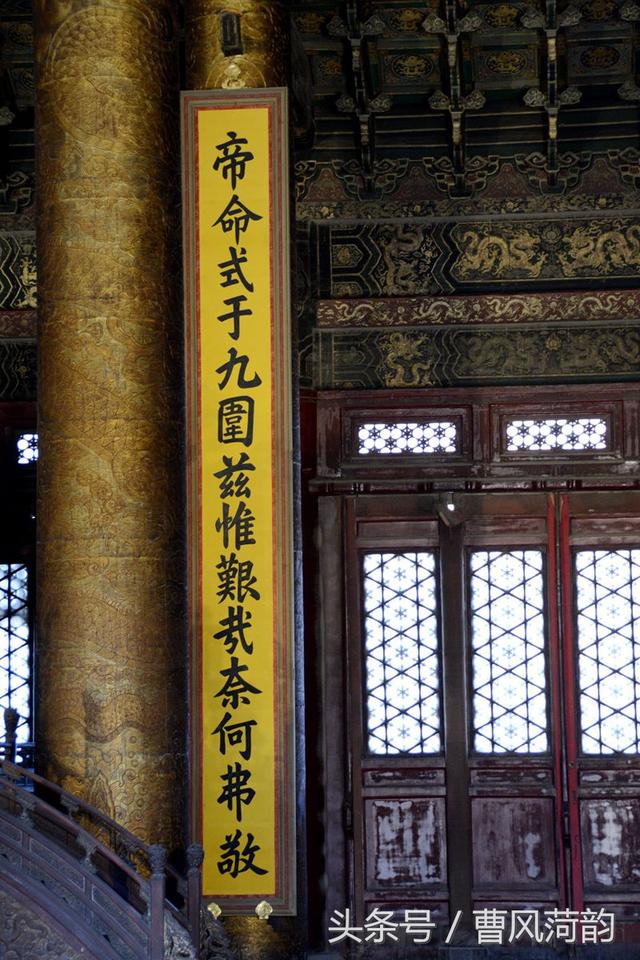 帝命式于九圍茲惟艱哉奈何弗敬
头条号 / 曹风菏韵